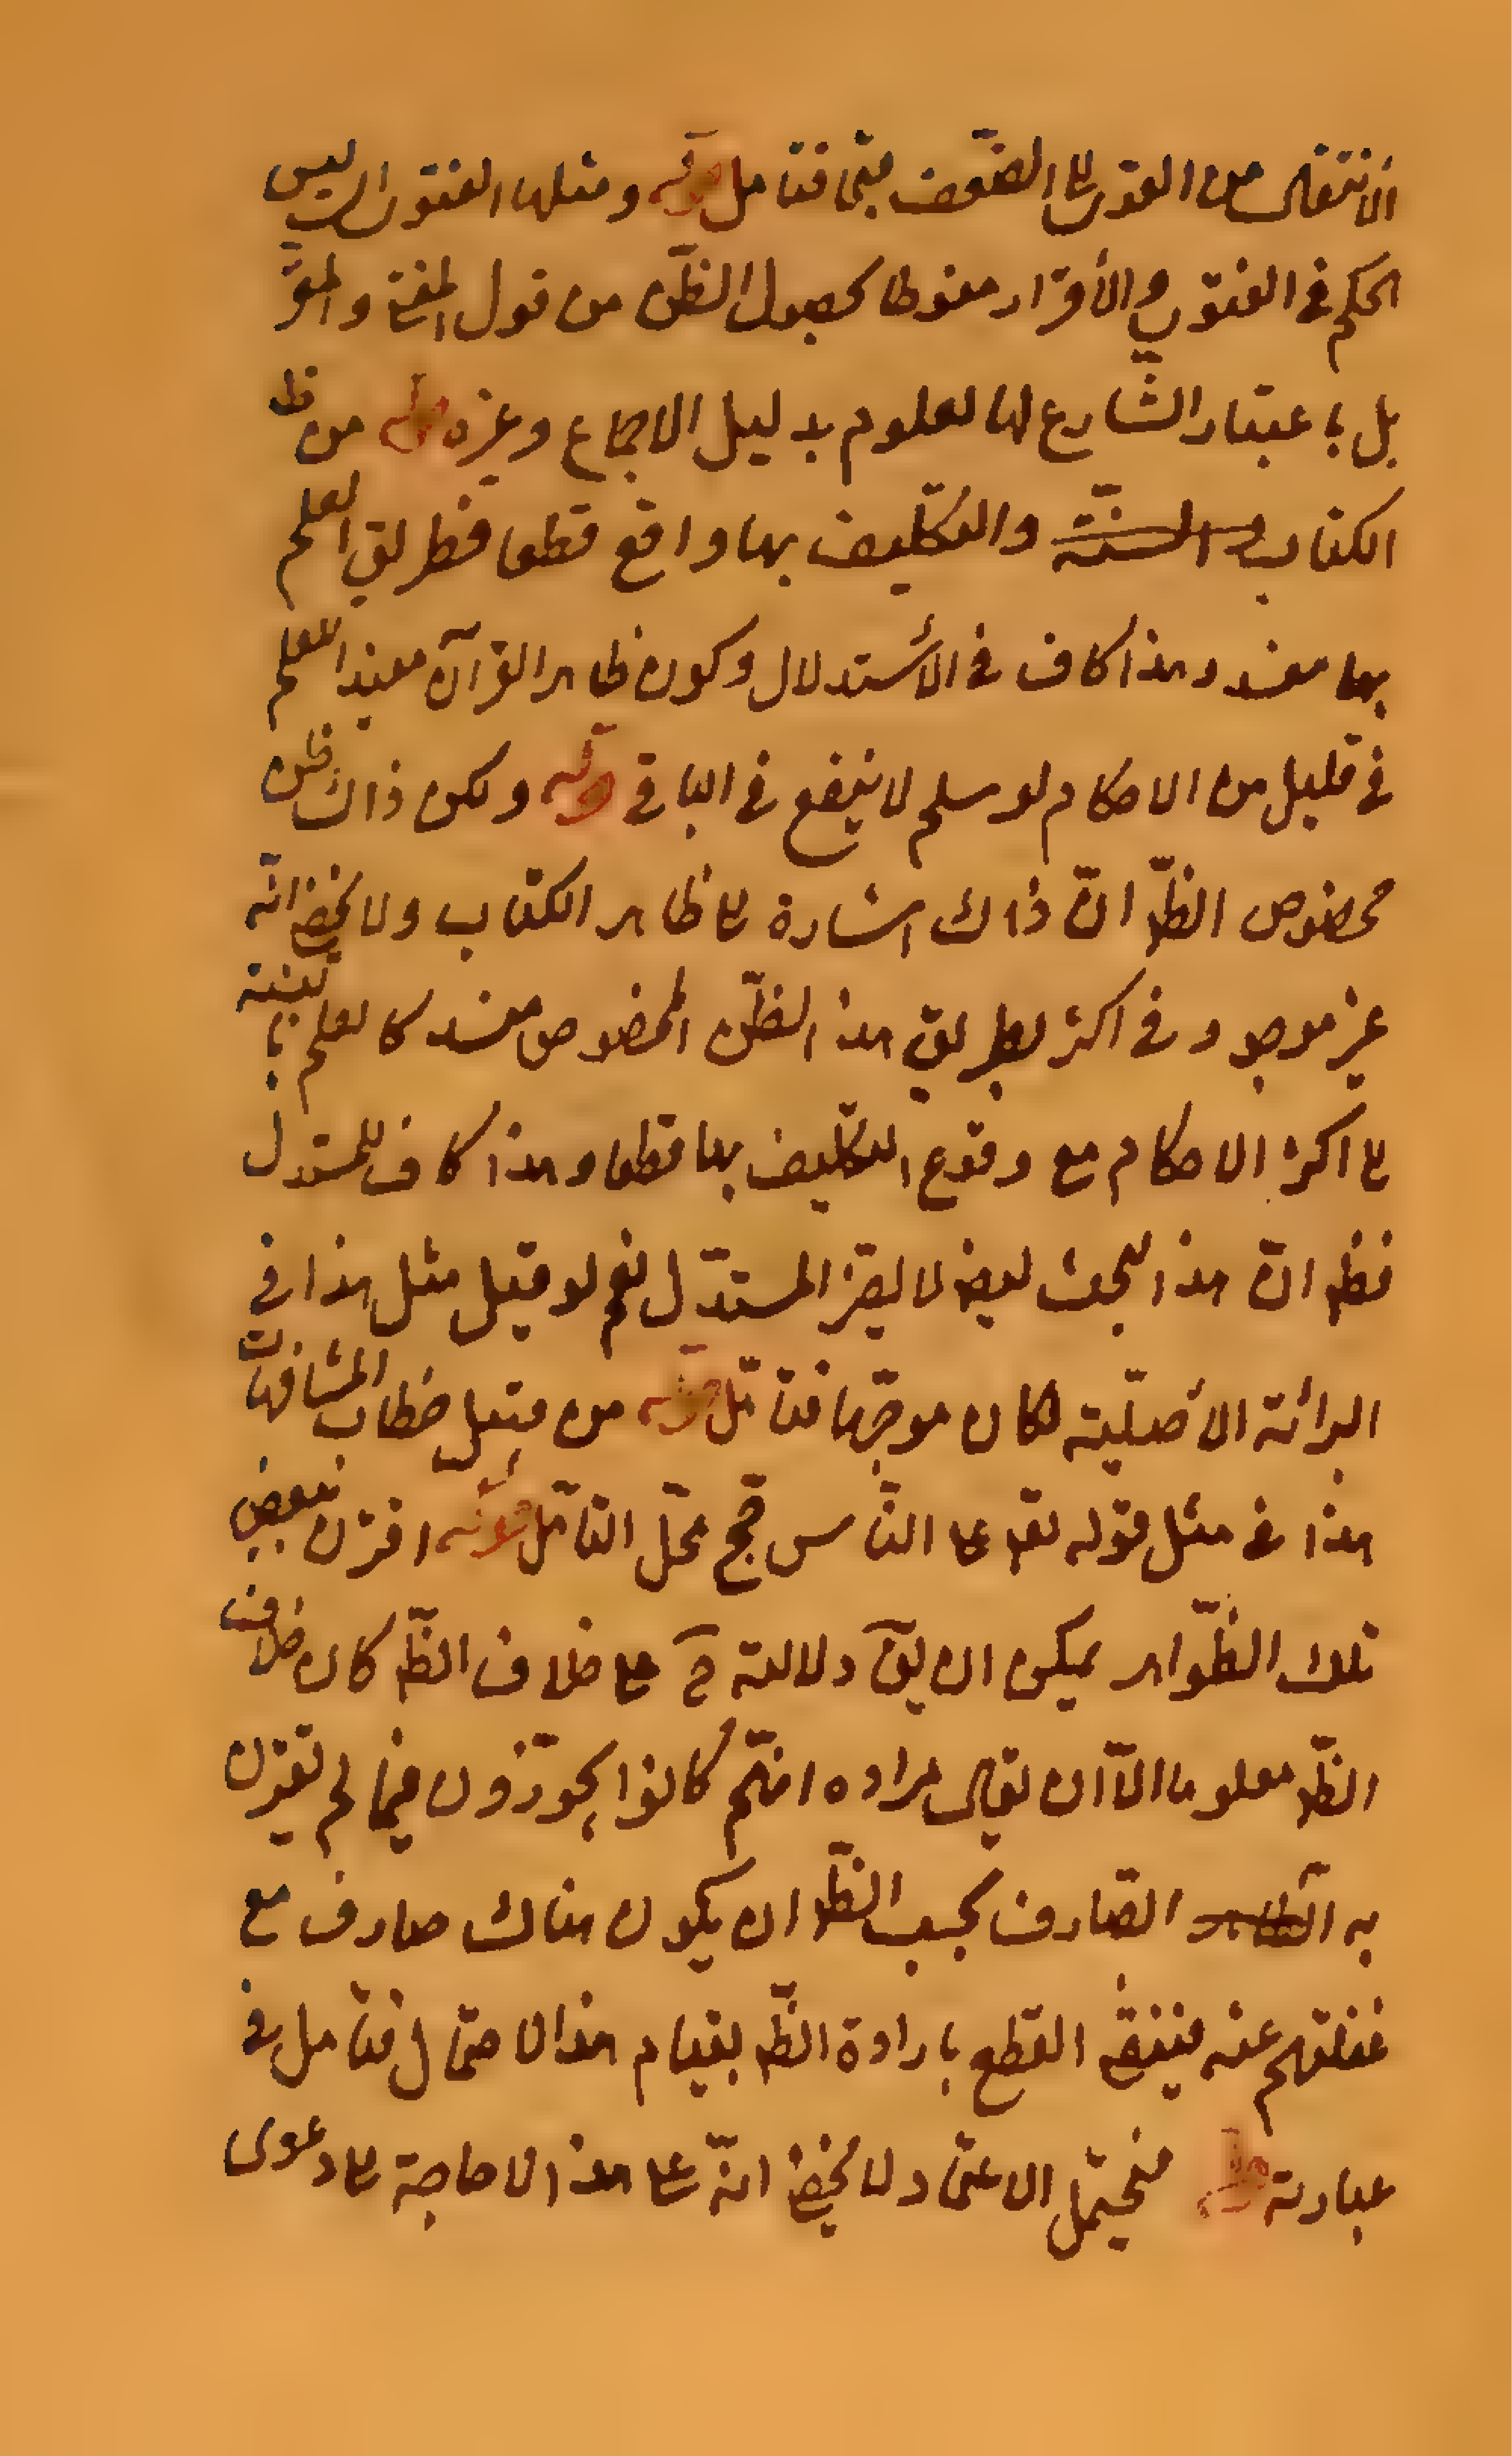 الانتقال من القوى الى الضعف فيها فتأمل قوله ومثلها الفتوى ليس
الحكم في الفتوى والأقرار منوطا بحصول الظن من قول المفتي والمقر
بل باعتبار الشارع لها لعلوم بدليل الاجماع وغيره قوله من ظ
الكتاب والسنة والتكليف بها واقع قطعا فطريق العلم
بها منسد وهذا كاف في الأستدلال وكون ظاهر القرآن مفيد العلم
في قليل من الاحكام لو سلم لا ينفع في الباقي قوله ولكن ذاك ظن
مخصوص الظ ان ذاك اشارة الى ظاهر الكتاب ولا يخفى انه
غير موجود في اكثر بطريق هذا الظن المخصوص منسد كالعلم بالنسبة
الى اكثر الاحكام مع وقوع التكليف بها قطعا وهذا كاف للمستدل
فظ ان هذا البحث ايض لا يضر المستدل نعم لو قيل مثل هذا في
البرائة الأصلية لكان موجها فتأمل قوله من قبيل خطاب المشافهات
هذا في مثل قوله تع على الناس حج محل التأمل قوله اقترن ببعض
تلك الظواهر يمكن ان يق دلالته ح على خلاف الظ كان خلاف
الظ معلوما الا ان يقال مراده انهم كانوا يجوزون فيما لم تقترن
به الظاهر الصارف بحسب الظ ان يكون هناك صارف مع
غفلتهم عنه فينتفي القطع بارادة الظ بقيام هذا الاحتمال فتأمل في
عبارته قوله فيحتمل الاعتماد لا يخفى انه على هذا لا حاجة الى دعوى